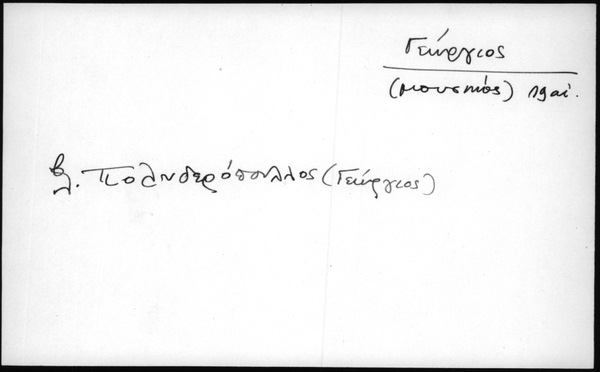 Γεώργιος
(μουσικός) 19αι.
βλ. Πολυδερόπουλλος (Γεώργιος)